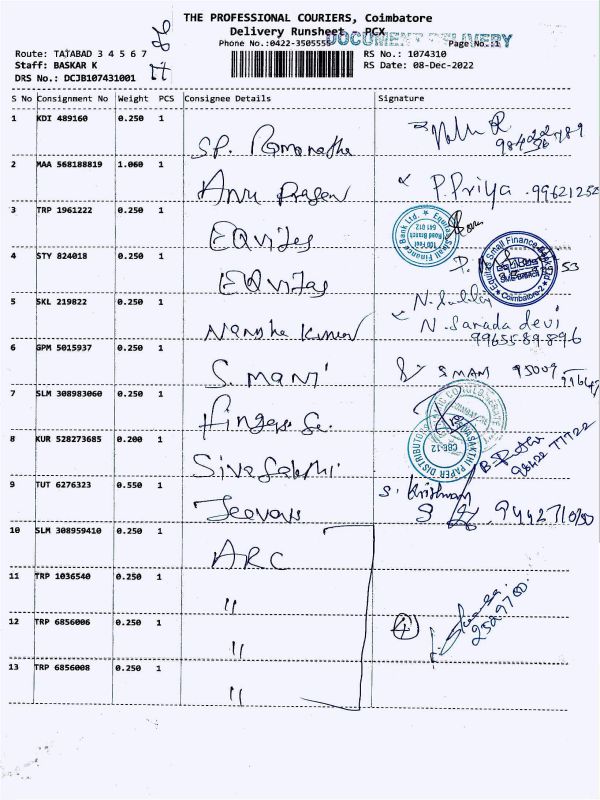 THE PROFESSIONAL COURIERS, Coimbatore
Delivery Runsheet PCX
Phone No.:0422-3505555 DOCUMENT DELIVERY Page No.:1
Route: TATABAD 3 4 5 6 7
Staff: BASKAR K
DRS No.: DCJB107431001
RS No.: 1074310
RS Date: 08-Dec-2022
S No Consignment No Weight PCS Consignee Details Signature
1 KDI 489160 0.250 1
S.P. Ramanatha
2 MAA 568188819 1.060 1
Anu P.Priya .99621252
3 TRP 1961222 0.250 1
EQuitas
4 STY 824018 0.250 1
EQuitas 53
Equitas Small Finance Bank Ltd.
100 Feet Road Branch
641 012
Equitas Small Finance Bank Ltd
Coimbatore-2
5 SKL 219822 0.250 1
Kumar N. Sarada devi
99655-89-896
6 GPM 5015937 0.250 1
S. mani S MANI
7 SLM 308983060 0.250 1
8 KUR 528273685 0.200 1
Sivasakthi
SIVASAKTHI PAPER DISTRIBUTORS
CBE-12
98422 77722
9 TUT 6276323 0.550 1
Jeevan S. Krishnan
10 SLM 308959410 0.250 1
ARC
11 TRP 1036540 0.250 1
"
12 TRP 6856006 0.250 1
" 4
13 TRP 6856008 0.250 1
"